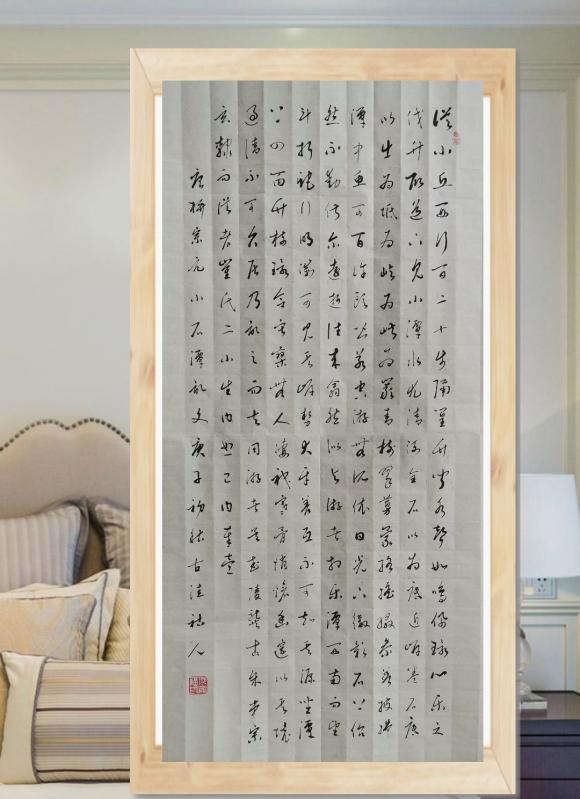 從小丘西行百二十步隔篁竹聞水聲如鳴佩環心樂之
伐竹取道下見小潭水尤清冽全石以為底近岸卷石底
以出為坻為嶼為嵁為巖青樹翠蔓蒙絡搖綴參差披拂
潭中魚可百許頭皆若空游無所依日光下澈影石上佁
然不動俶爾遠逝往來翕然似與游者相樂潭西南而望
斗折蛇行明滅可見其岸勢犬牙差互不可知其源坐潭
上四面竹樹環合寂寥無人淒神寒骨悄愴幽邃以其境
過清不可久居乃記之而去同游者吳武陵龔古余弟宗
玄隸而從者崔氏二小生曰恕己曰奉壹
唐柳宗元小石潭記文庚子初秋古人